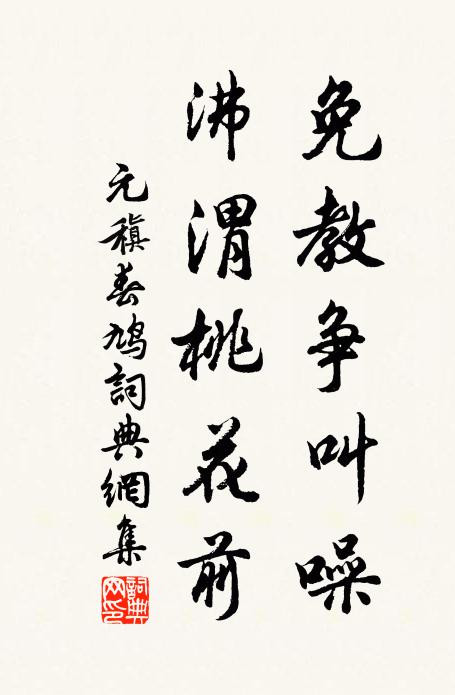 免教争叫噪
沸渭桃花前
元稹春鳩詞典網集
詞典網印